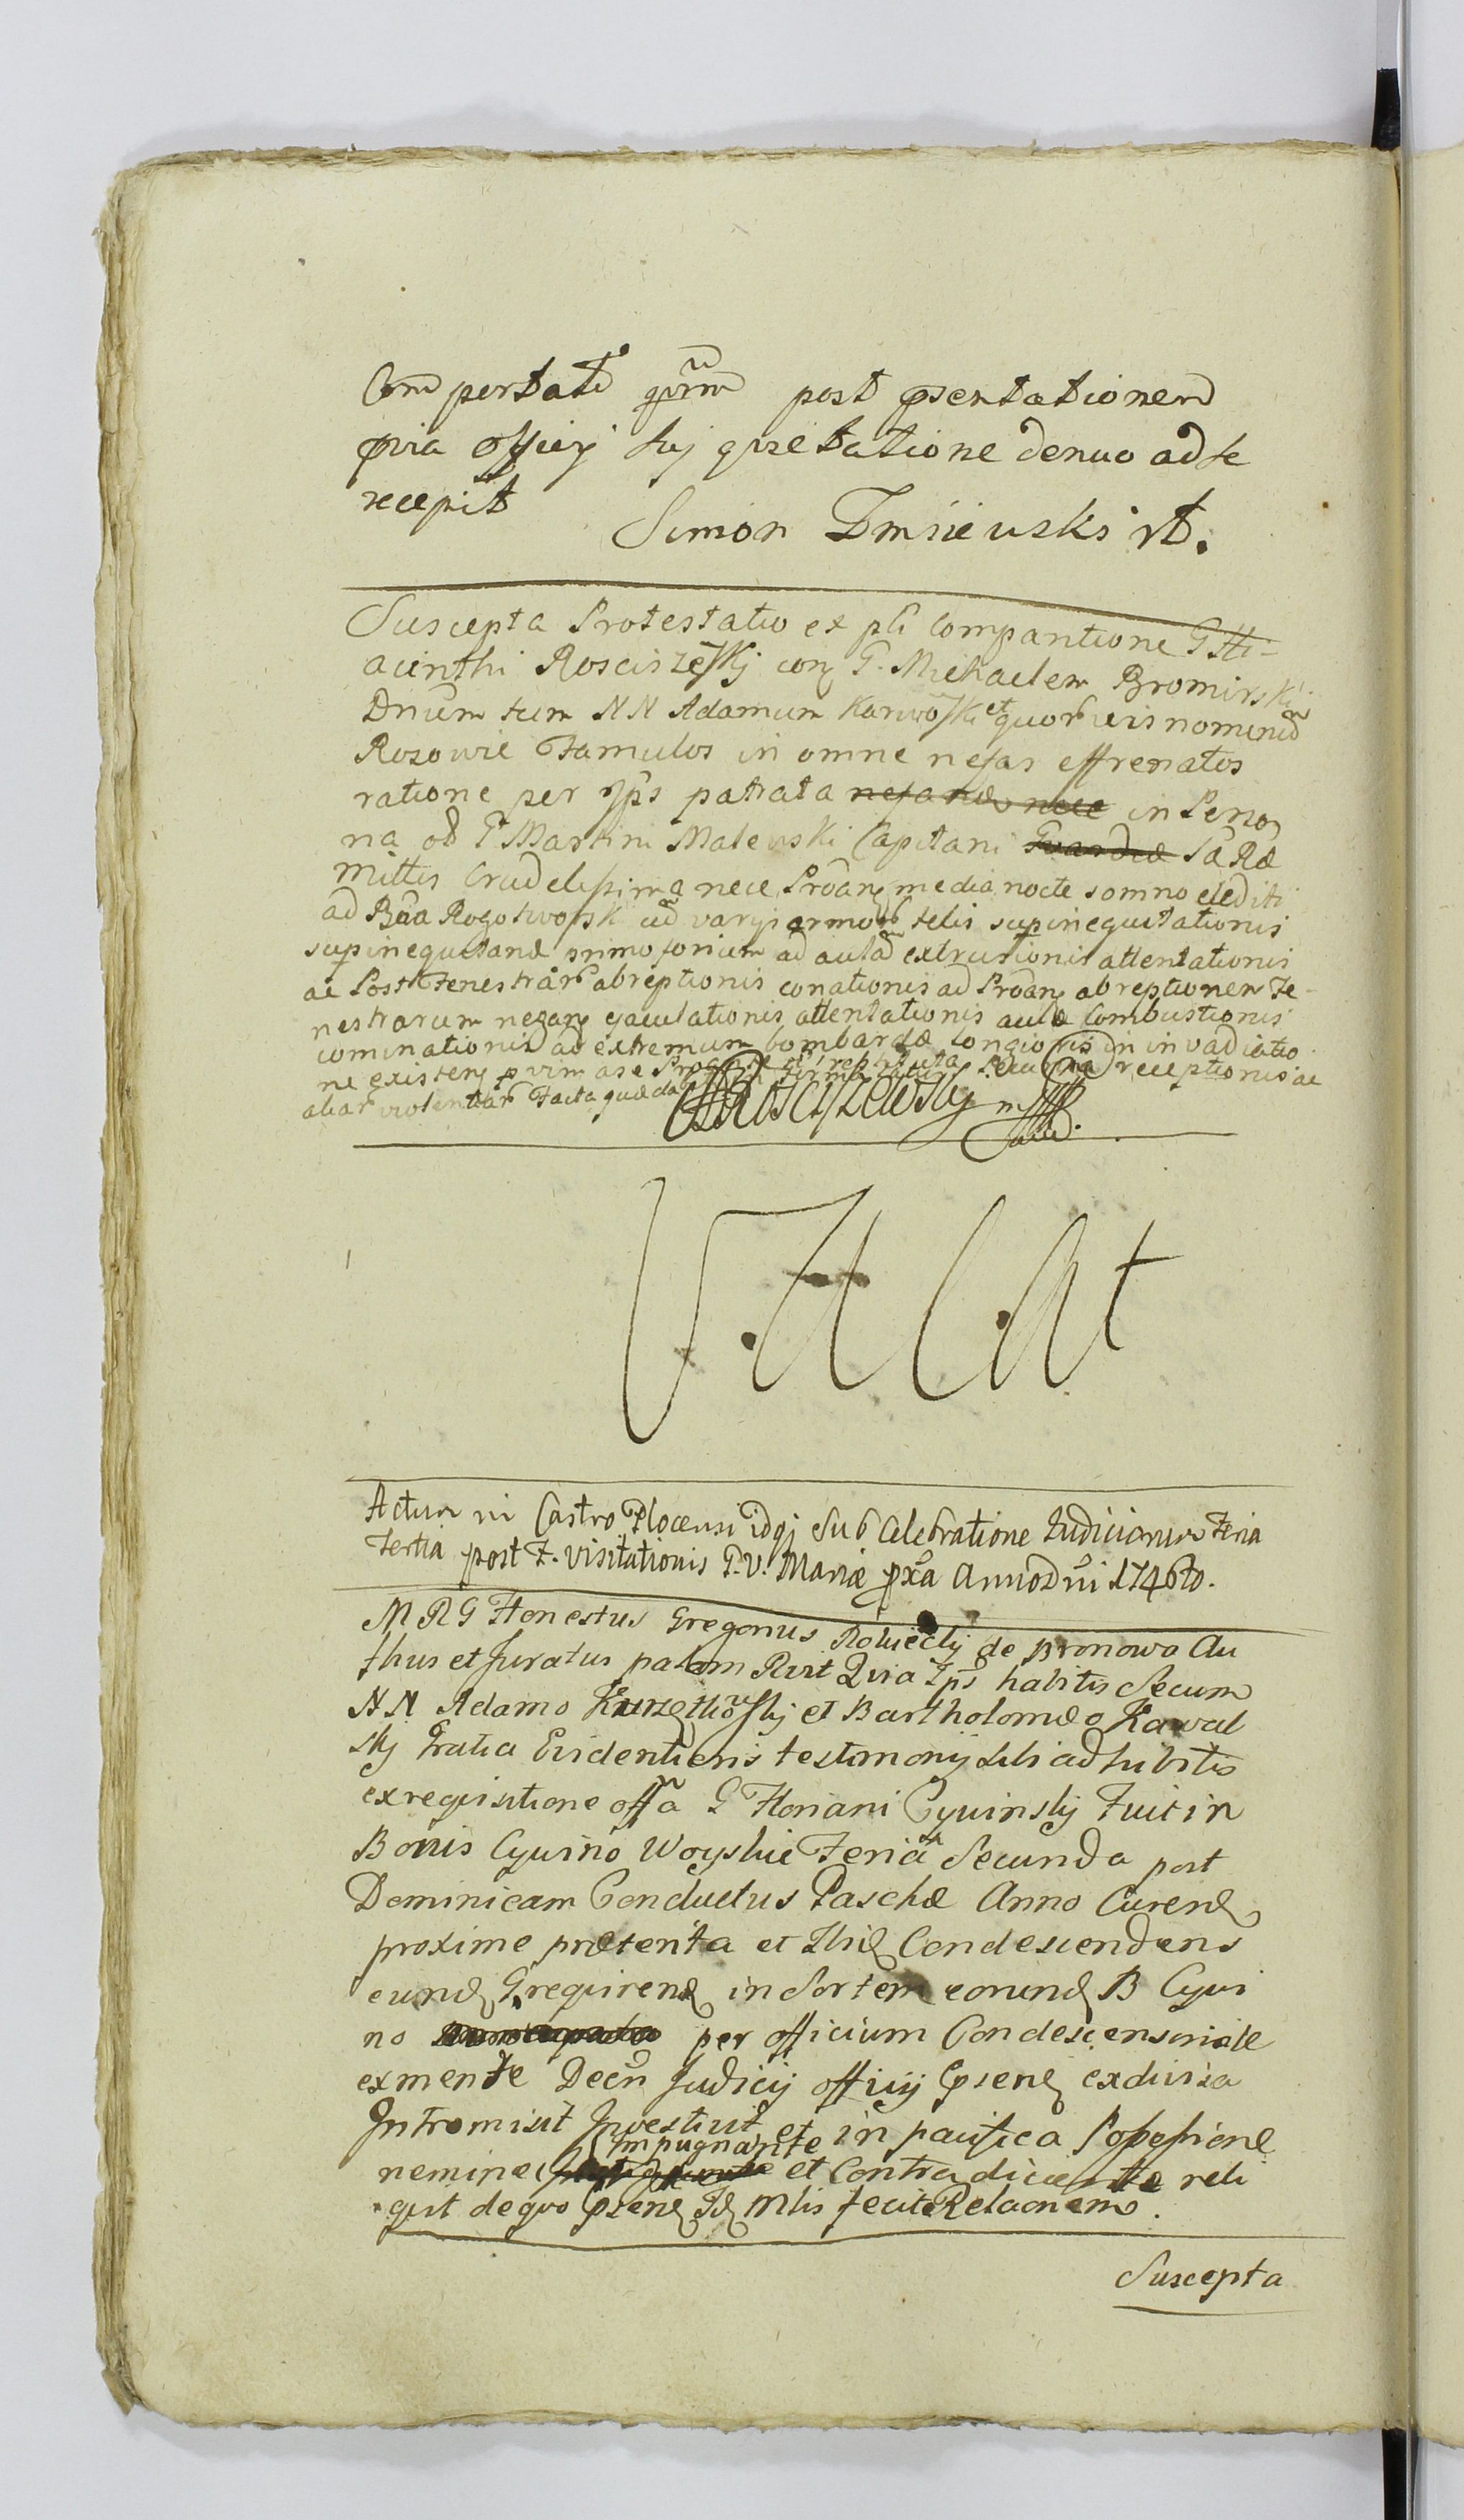 Comportati qrum post psentationem
pvia officij huj qvietatione denuo ad se
recepit
Simon Zmiieuski rt.
Suscepta Protestatio ex pli Compantione G Hi-
acinthi Rosciszēskj con G. Michaelem Bromirski
Dnum tum NN Adamum Karwoski et quorvis nominũ
Rozowie Famulos in omne nefas effrenatos
ratione per Ips patrata nefanda nece in Perso
na ol G Martini Malewski Capitani Gvardiæ Sa Ræ
Mittis Crudelissima nece Proān media nocte somno et editi
ad Bna Rogotwosk cũ varys armor telis supinequitationis
supinequitand primo forium ad aulã extrusionis attentationis
ac Post Fenestrãr abreptionis conationis ad Proān abreptionem Fe-
nestrarum negan ejaculationis attentationis aulæ Combustionis
cominationis ad extremum bombardæ longioris in invadiatio
ne existen p vim a se receptionis ac
aliar violentiãr Facta quæda
HRosciszewsky mp
V.A C.At
Actum in Castro Plocensi idqj sub Celebratione Judiciorum Feria
Tertia post F. Visitationis B.V. Mariæ pxa Anno Dni 1746to.
M R G Honestus Gregorius Rokicky de Bronowo Au
thus et Juratus palam Rvit Qvia Ips habitis Secum
N.N. Adamo et Bartholomeo Kawal
skj Gratia Evidentioris testimonij sibi adhibitis
ex reqvisitione offa G Floriani Cywinskj Fuit in
Bonis Cywino Woyskie Feria Secunda post
Dominicam Conductus Paschæ Anno Curend
proxime præterita et Ibid Condescendens
eund G reqvirend in Sortem eorund B Cywi
no per officium Condescensoriale
ex mente Decti Judicij officij Psend ex divisa
Intromisit Investivit et in pacifica Possessione
nemine Impugnante et Contradicente reli
qvit de qvo Psens Id Mlis fecit Relaonem.
Suscepta